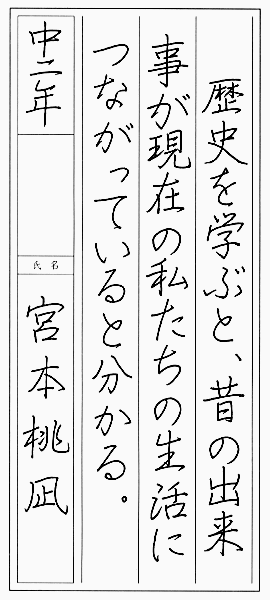 歴史を学ぶと、昔の出来
事が現在の私たちの生活に
つながっていると分かる。
中二年
氏名
宮本桃凪